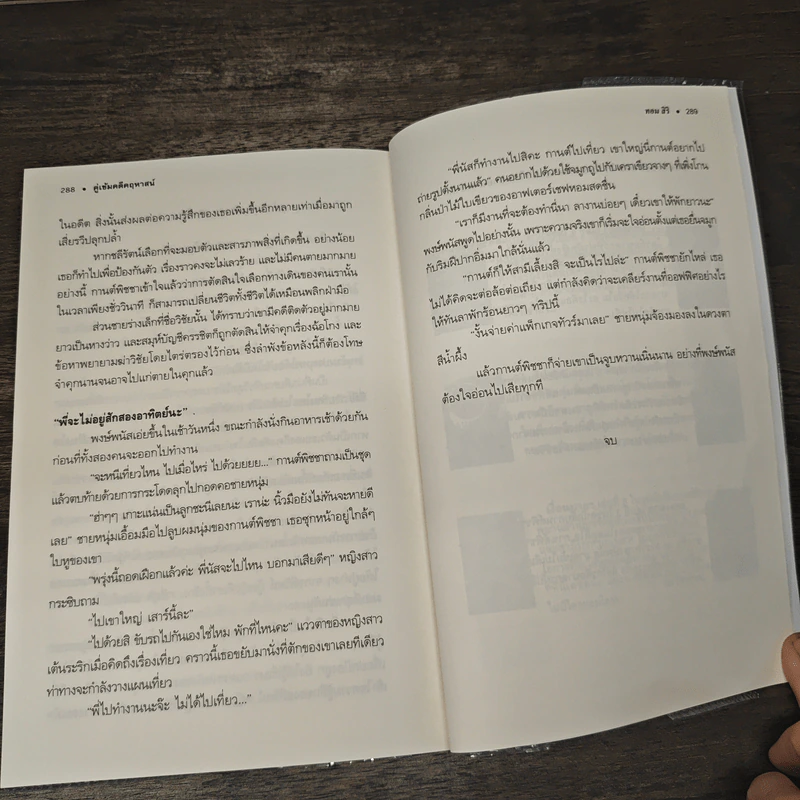 288 • คู่เข้มคดีคฤหาสน์
ในอดีต สิ่งนั้นส่งผลต่อความรู้สึกของเธอเพิ่มขึ้นอีกหลายเท่าเมื่อมาถูก
เสี่ยรวีปลุกปล้ำ
หากชลีรัตน์เลือกที่จะมอบตัวและสารภาพสิ่งที่เกิดขึ้น อย่างน้อย
เธอก็ทำไปเพื่อป้องกันตัว เรื่องราวคงจะไม่เลวร้าย และไม่มีคนตายมากมาย
อย่างนี้ กานต์พิชชาเข้าใจแล้วว่าการตัดสินใจเลือกทางเดินของคนเรานั้น
ในเวลาเพียงชั่ววินาที ก็สามารถเปลี่ยนชีวิตทั้งชีวิตได้เหมือนพลิกฝ่ามือ
ส่วนชายร่างเล็กที่ชื่อวิชัยนั้น ได้ทราบว่าเขามีคดีติดตัวอยู่มากมาย
ยาวเป็นหางว่าว และสมุห์บัญชีครรชิตก็ถูกตัดสินให้จำคุกเรื่องฉ้อโกง และ
ข้อหาพยายามฆ่าวิชัยโดยไตร่ตรองไว้ก่อน ซึ่งลำพังข้อหลังนี้ก็ต้องโทษ
จำคุกนานจนอาจไปแก่ตายในคุกแล้ว
“พี่จะไม่อยู่สักสองอาทิตย์นะ”
พงษ์พนัสเอ่ยขึ้นในเช้าวันหนึ่ง ขณะกำลังนั่งกินอาหารเช้าด้วยกัน
ก่อนที่ทั้งสองคนจะออกไปทำงาน
“จะหนีเที่ยวไหน ไปเมื่อไหร่ ไปด้วยยยย...” กานต์พิชชาถามเป็นชุด
แล้วตบท้ายด้วยการกระโดดลุกไปกอดคอชายหนุ่ม
“ฮ่าๆๆ เกาะแน่นเป็นลูกชะนีเลยนะ เราน่ะ นิ้วมือยังไม่ทันจะหายดี
เลย” ชายหนุ่มเอื้อมมือไปลูบผมนุ่มของกานต์พิชชา เธอซุกหน้าอยู่ใกล้ๆ
ใบหูของเขา
“พรุ่งนี้ถอดเฝือกแล้วค่ะ พี่นัสจะไปไหน บอกมาเสียดีๆ” หญิงสาว
กระซิบถาม
“ไปเขาใหญ่ เสาร์นี้ละ”
“ไปด้วยสิ ขับรถไปกันเองใช่ไหม พักที่ไหนคะ” แววตาของหญิงสาว
เต้นระริกเมื่อคิดถึงเรื่องเที่ยว คราวนี้เธอขยับมานั่งที่ตักของเขาเลยทีเดียว
ท่าทางจะกำลังวางแผนเที่ยว
“พี่ไปทำงานนะจ๊ะ ไม่ได้ไปเที่ยว...”
สิริ • 289
“พี่นัสก็ทำงานไปสิคะ กานต์ไปเที่ยว เขาใหญ่นี่กานต์อยากไป
ถ่ายรูปตั้งนานแล้ว” คนอยากไปด้วยใช้จมูกถูไปกับเคราเขียวจางๆ ที่เพิ่งโกน
กลิ่นป่าไม้ใบเขียวของอาฟเตอร์เชฟหอมสดชื่น
“เราก็มีงานที่จะต้องทำนี่นา ลางานบ่อยๆ เดี๋ยวเขาให้พักยาวนะ”
พงษ์พนัสพูดไปอย่างนั้น เพราะความจริงเขาก็เริ่มจะใจอ่อนตั้งแต่เธอยื่นจมูก
กับริมฝีปากอิ่มมาใกล้นั่นแล้ว
“กานต์ก็ให้สามีเลี้ยงสิ จะเป็นไรไปล่ะ” กานต์พิชชายักไหล่ เธอ
ไม่ได้คิดจะต่อล้อต่อเถียง แต่กำลังคิดว่าจะเคลียร์งานที่ออฟฟิศอย่างไร
ให้ทันลาพักร้อนยาวๆ ทริปนี้
“งั้นจ่ายค่าแพ็กเกจทัวร์มาเลย” ชายหนุ่มจ้องมองลงในดวงตา
สีน้ำผึ้ง
แล้วกานต์พิชชาก็จ่ายเขาเป็นจูบหวานเนิ่นนาน อย่างที่พงษ์พนัส
ต้องใจอ่อนไปเสียทุกที
จบ